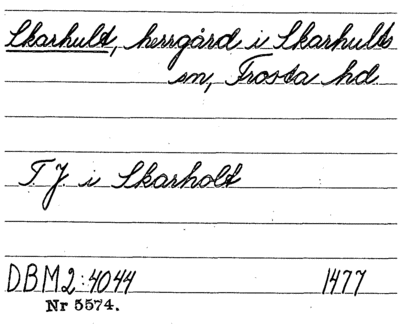 Skarhult, herrgård i Skarhults
sn, Frosta hd.
T. J. i Skarholt
DBM2:4044 1477
Nr 5574.